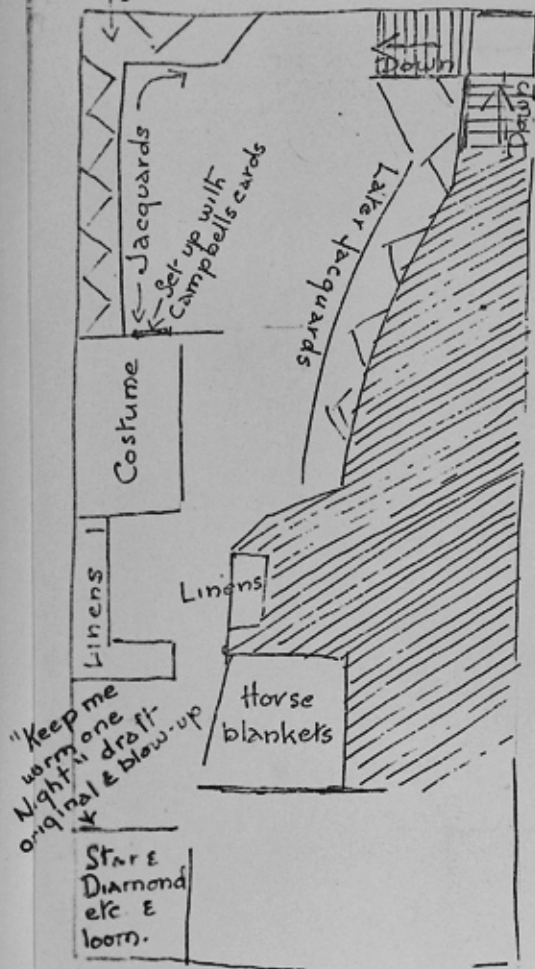 Down
Down
Jacquards
Set-up with
Campbells cards
Later Jacquards
Costume
Linens
Linens
Horse
blankets
"Keep me
warm one
Night" draft-
original & blow-up
Star &
Diamond
etc &
loom.